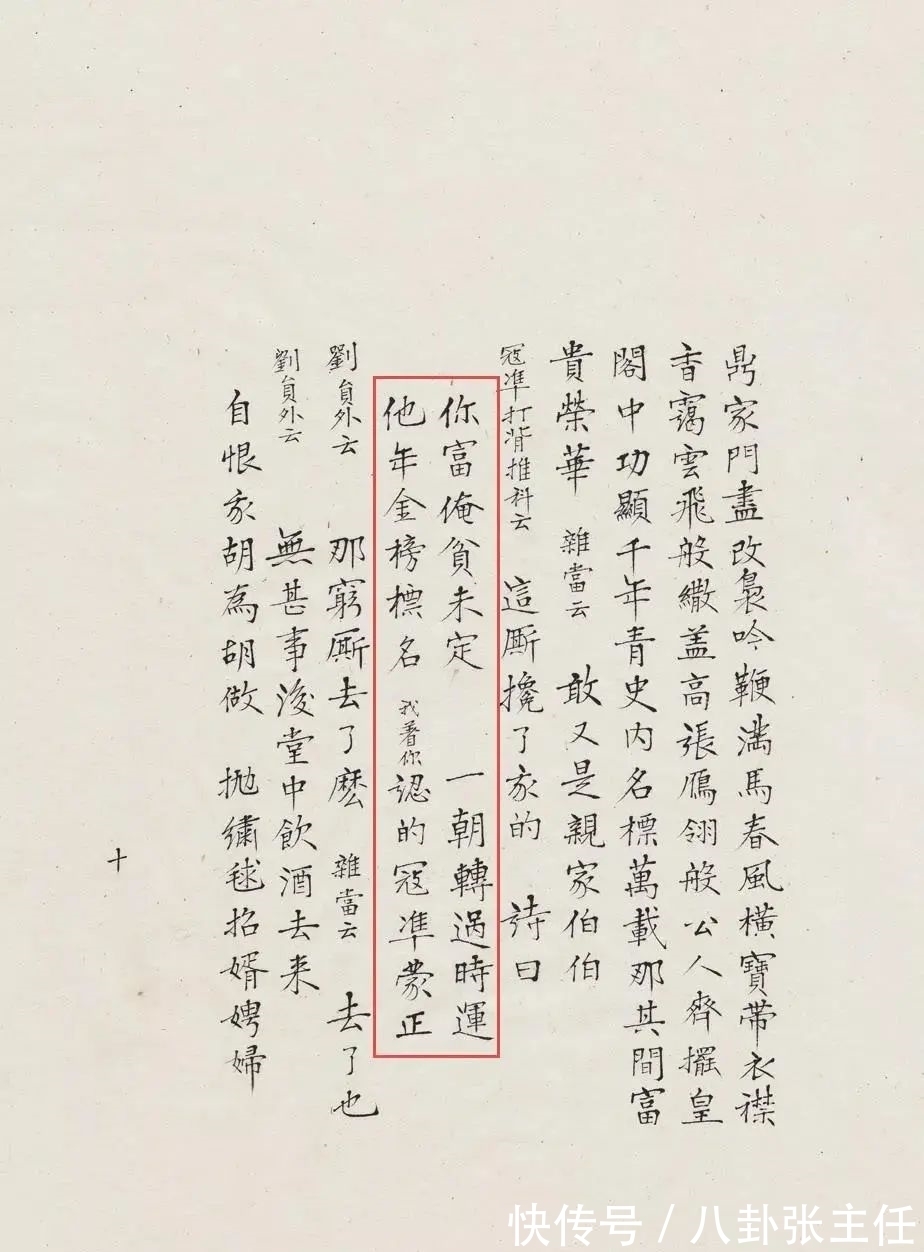 鼎家門盡改梟吟鞭滿馬春風橫寶帶衣襟
香靄雲飛般繖盖高張鴈翎般公人齊擺皇
閣中功顯千年青史內名標萬載那其間富
貴榮華 雜當云 敢又是親家伯伯
冦準打背推科云 這厮攙了家的 詩曰
你富俺貧未定 一朝轉過時運
他年金榜標名 我着你認的冦準蒙正
劉員外云 那窮厮去了麽 雜當云 去了也
劉員外云 無甚事後堂中飲酒去来
自恨家胡為胡做 抛繡毬招婿娉婦
十
快传号 / 八卦张主任